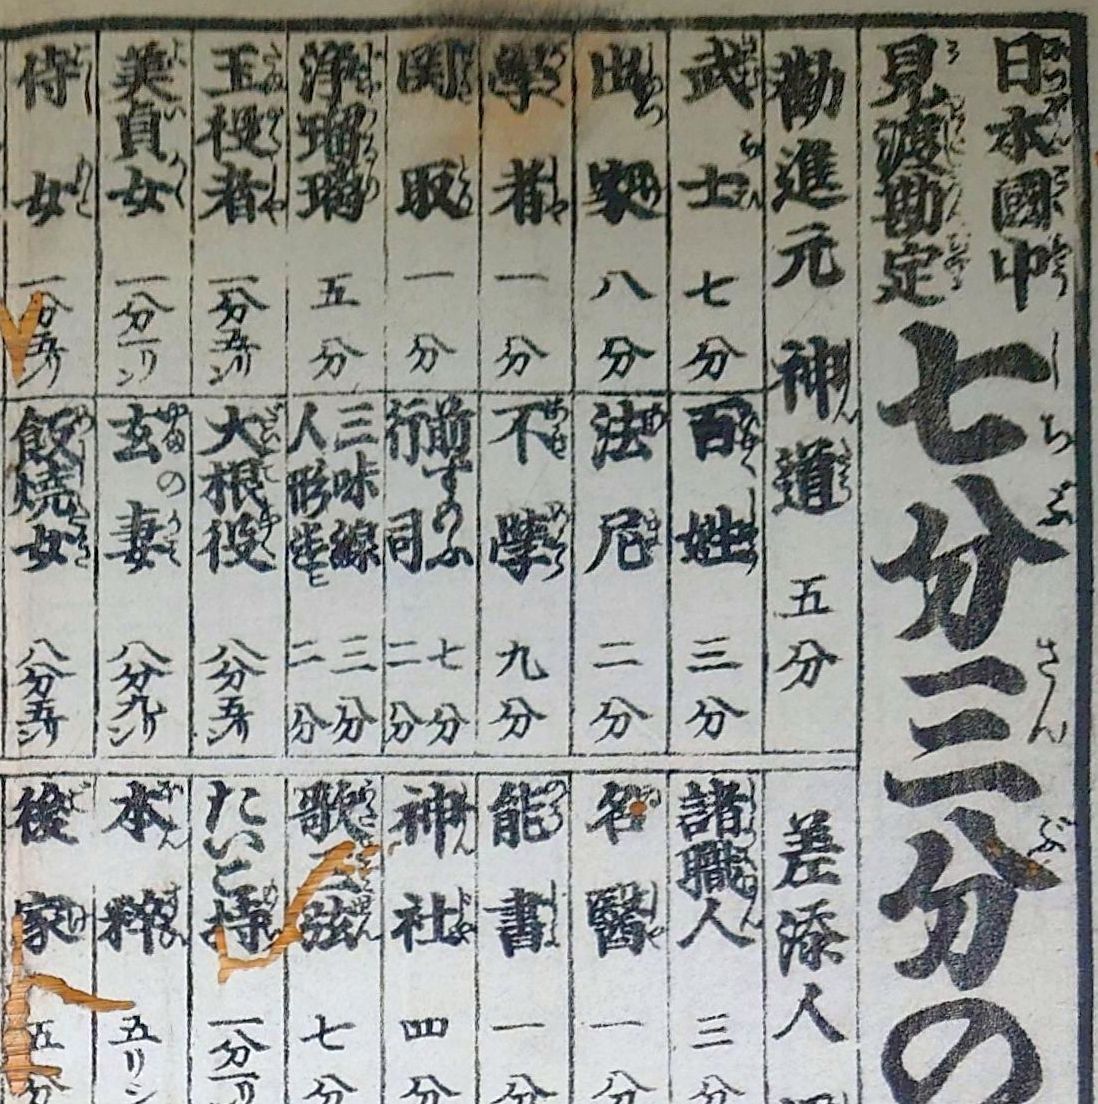 日本國中
見渡勘定
七分三分の
勸進元 神道 五分
差添人
武士 七分
百姓 三分
諸職人 三分
出家 八分
法尼 二分
名醫 一分
學者 一分
不學 九分
能書 一分
関取 一分
前ずもふ 七分
行司 二分
神社 四分
浄瑠璃 五分
三味線 三分
人形 二分
歌 七分
玉役者 一分五リン
大根役 八分五リン
たいこ持 一分一リン
美貞女 一分一リン
玄の妻 八分九リン
本粹 五リン
侍女 一分五リン
飯焼女 八分五リン
後家 五分